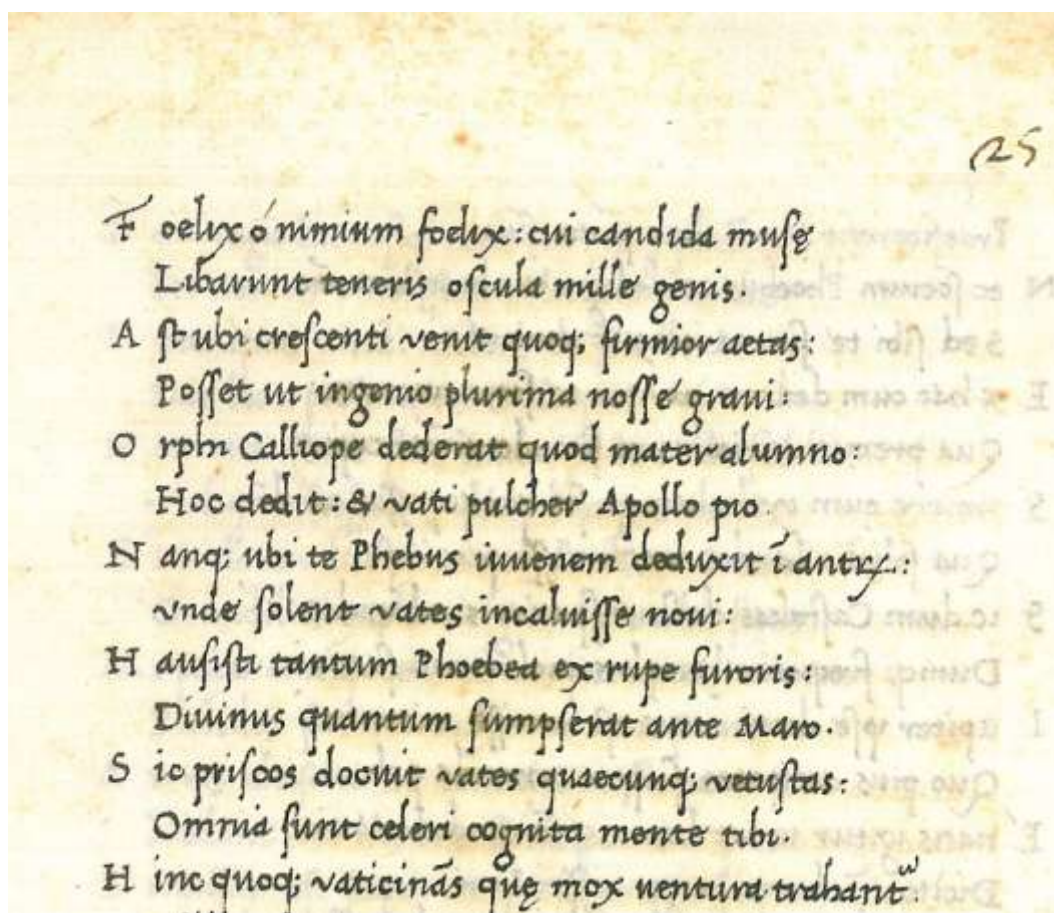 25
Foelix ó nimium foelix: cui candida musę
Libarunt teneris oscula mille genis.
Ast ubi crescenti venit quoq; firmior aetas:
Posset ut ingenio plurima nosse graui:
Orphi Calliope dederat quod mater alumno:
Hoc dedit: & vati pulcher Apollo pio.
Nanq; ubi te Phebus iuuenem deduxit ī antrꝝ:
vnde solent vates incaluisse noui:
Hausisti tantum Phoebea ex rupe furoris:
Diuinus quantum sumpserat ante Maro.
Sic priscos docuit vates quaecunq; vetustas:
Omnia sunt celeri cognita mente tibi.
Hinc quoq; vaticinās quę mox uentura trahant